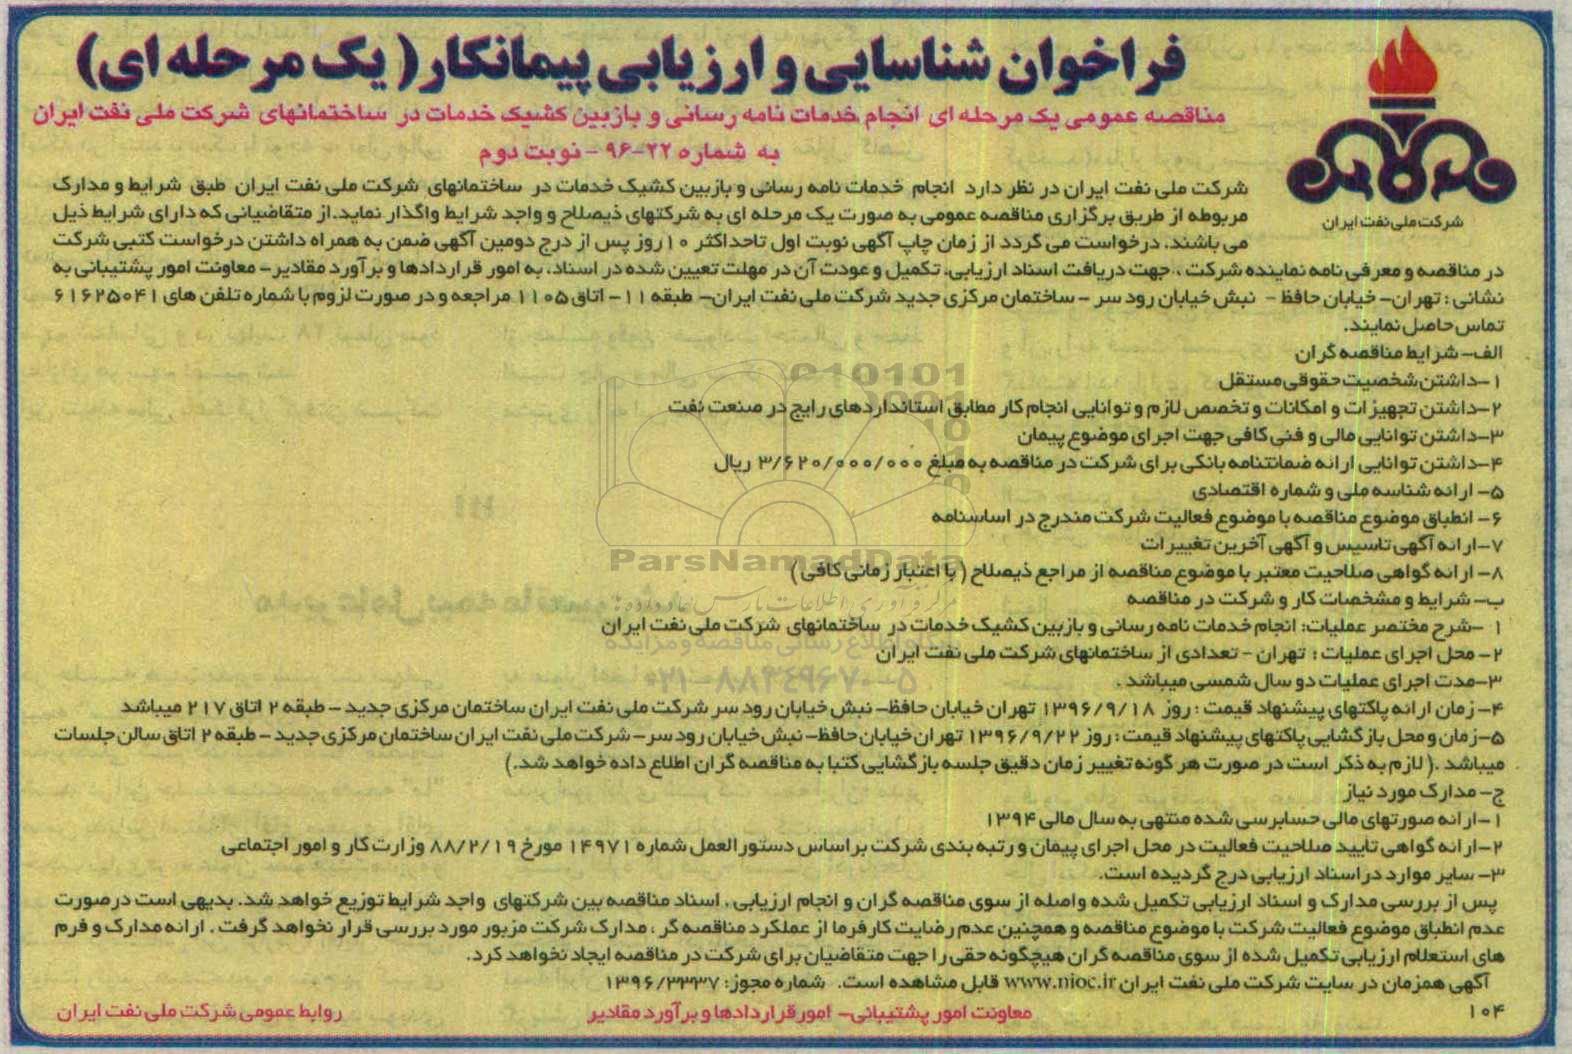 فراخوان شناسایی و ارزیابی پیمانکار( یک مرحله ای)
مناقصه عمومی یک مرحله ای انجام خدمات نامه رسانی و بازبین کشیک خدمات در ساختمانهای شرکت ملی نفت ایران
به شماره ۲۲-۹۶ - نوبت دوم
شرکت ملی نفت ایران
شرکت ملی نفت ایران در نظر دارد انجام خدمات نامه رسانی و بازبین کشیک خدمات در ساختمانهای شرکت ملی نفت ایران طبق شرایط و مدارک
مربوطه از طریق برگزاری مناقصه عمومی به صورت یک مرحله ای به شرکتهای ذیصلاح و واجد شرایط واگذار نماید.از متقاضیانی که دارای شرایط ذیل
می باشند، درخواست می گردد از زمان چاپ آگهی نوبت اول تاحداکثر ۱۰روز پس از درج دومین آگهی ضمن به همراه داشتن درخواست کتبی شرکت
در مناقصه و معرفی نامه نماینده شرکت ، جهت دریافت اسناد ارزیابی، تکمیل و عودت آن در مهلت تعیین شده در اسناد، به امور قراردادها و برآورد مقادیر- معاونت امور پشتیبانی به
نشانی : تهران- خیابان حافظ - نبش خیابان رود سر - ساختمان مرکزی جدید شرکت ملی نفت ایران- طبقه ۱۱- اتاق ۱۱۰۵ مراجعه و در صورت لزوم با شماره تلفن های ۶۱۶۲۵۰۴۱
تماس حاصل نمایند.
الف- شرایط مناقصه گران
۱-داشتن شخصیت حقوقی مستقل
۲-داشتن تجهیزات و امکانات و تخصص لازم و توانایی انجام کار مطابق استانداردهای رایج در صنعت نفت
۳-داشتن توانایی مالی و فنی کافی جهت اجرای موضوع پیمان
۴-داشتن توانایی ارائه ضمانتنامه بانکی برای شرکت در مناقصه به مبلغ ۳/۶۲۰/۰۰۰/۰۰۰ ریال
۵- ارائه شناسه ملی و شماره اقتصادی
۶- انطباق موضوع مناقصه با موضوع فعالیت شرکت مندرج در اساسنامه
۷-ارائه آگهی تاسیس و آگهی آخرین تغییرات
۸- ارائه گواهی صلاحیت معتبر با موضوع مناقصه از مراجع ذیصلاح ( با اعتبار زمانی کافی)
ب- شرایط و مشخصات کار و شرکت در مناقصه
۱ -شرح مختصر عملیات: انجام خدمات نامه رسانی و بازبین کشیک خدمات در ساختمانهای شرکت ملی نفت ایران
۲- محل اجرای عملیات : تهران - تعدادی از ساختمانهای شرکت ملی نفت ایران
۳-مدت اجرای عملیات دو سال شمسی میباشد .
۴- زمان ارائه پاکتهای پیشنهاد قیمت : روز ۱۳۹۶/۹/۱۸ تهران خیابان حافظ- نبش خیابان رود سر شرکت ملی نفت ایران ساختمان مرکزی جدید - طبقه ۲ اتاق ۲۱۷ میباشد
۵-زمان و محل بازگشایی پاکتهای پیشنهاد قیمت : روز ۱۳۹۶/۹/۲۲ تهران خیابان حافظ- نبش خیابان رود سر- شرکت ملی نفت ایران ساختمان مرکزی جدید - طبقه ۲ اتاق سالن جلسات
میباشد .( لازم به ذکر است در صورت هر گونه تغییر زمان دقیق جلسه بازگشایی کتبا به مناقصه گران اطلاع داده خواهد شد.)
ج- مدارک مورد نیاز
۱-ارائه صورتهای مالی حسابرسی شده منتهی به سال مالی ۱۳۹۴
۲-ارائه گواهی تایید صلاحیت فعالیت در محل اجرای پیمان و رتبه بندی شرکت براساس دستورالعمل شماره ۱۴۹۷۱ مورخ ۸۸/۲/۱۹ وزارت کار و امور اجتماعی
۳- سایر موارد در اسناد ارزیابی درج گردیده است.
پس از بررسی مدارک و اسناد ارزیابی تکمیل شده واصله از سوی مناقصه گران و انجام ارزیابی ، اسناد مناقصه بین شرکتهای واجد شرایط توزیع خواهد شد. بدیهی است درصورت
عدم انطباق موضوع فعالیت شرکت با موضوع مناقصه و همچنین عدم رضایت کارفرما از عملکرد مناقصه گر ، مدارک شرکت مزبور مورد بررسی قرار نخواهد گرفت . ارائه مدارک و فرم
های استعلام ارزیابی تکمیل شده از سوی مناقصه گران هیچگونه حقی را جهت متقاضیان برای شرکت در مناقصه ایجاد نخواهد کرد.
آگهی همزمان در سایت شرکت ملی نفت ایران www.nioc.ir قابل مشاهده است. شماره مجوز: ۱۳۹۶/۳۳۳۷
۱۰۴
معاونت امور پشتیبانی- امور قراردادها و برآورد مقادیر
روابط عمومی شرکت ملی نفت ایران
ParsNamadData
مرکز فرآوری اطلاعات پارس نماد داده ها
پایگاه اطلاع رسانی مناقصه و مزایده
۰۲۱-۸۸۳۴۹۶۷۰-۵